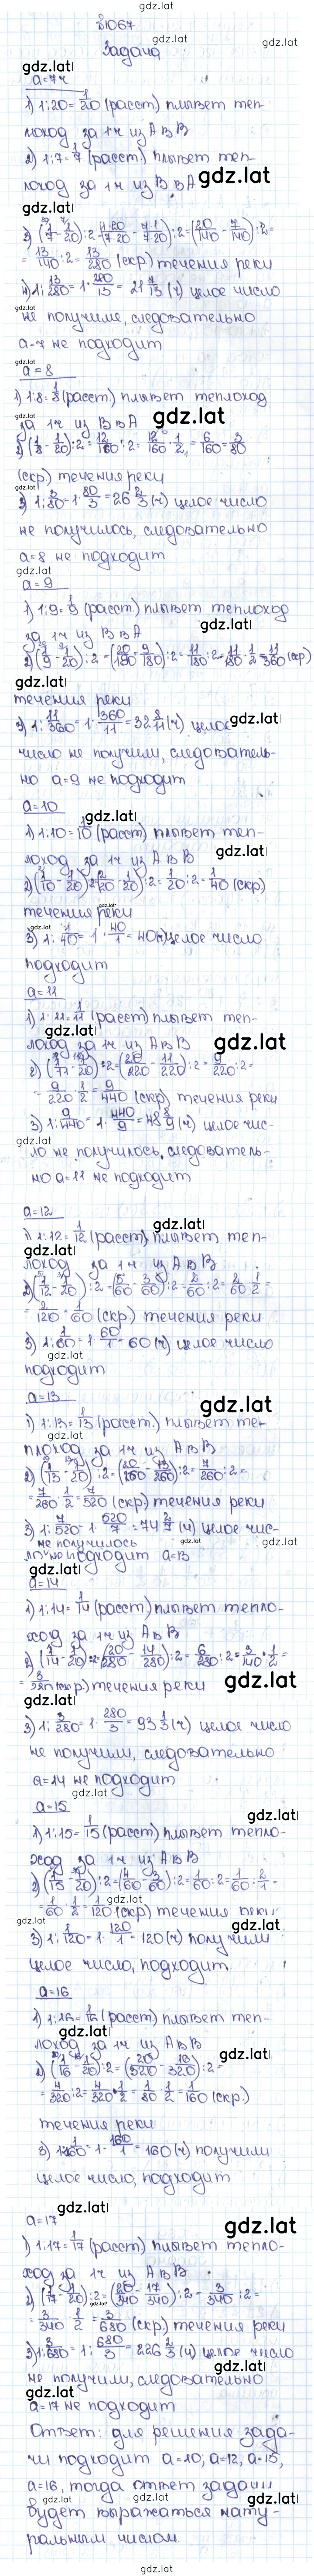 gdz.lat
№1067
gdz.lat
gdz.lat
Задача
gdz.lat
a=7ч
1) 1:20=1/20 (расст) плывет теп-
лоход за 1ч из A в B
2) 1:7=1/7 (расст) плывет теп-
лоход за 1ч из B в A
gdz.lat
gdz.lat
3) (1/7-1/20):2=(1·20/7·20-7·1/7·20):2=(20/140-7/140):2=
=13/140:2=13/280 (ск) течения реки
4) 1:13/280=1·280/13=21 7/13 (ч) целое число
gdz.lat
не получили, следовательно
a=7 не подходит
gdz.lat
a=8
1) 1:8=1/8 (расст) плывет теплоход
за 1ч из B в A
gdz.lat
2) (1/8-1/20):2=12/160:2=12/160·1/2=6/160=3/80
(скр) течения реки
gdz.lat
3) 1:3/80=1·80/3=26 2/3 (ч) целое число
не получилось, следовательно
a=8 не подходит
gdz.lat
a=9
1) 1:9=1/9 (расст) плывет теплоход
за 1ч из B в A
gdz.lat
2) (1/9-1/20):2=(20/180-9/180):2=11/180:2=11/180·1/2=11/360 (скр)
gdz.lat
течения реки
3) 1:11/360=1·360/11=32 8/11 (ч) целое
gdz.lat
число не получили, следователь-
но a=9 не подходит
a=10
gdz.lat
1) 1:10=1/10 (расст) плывет теп-
лоход за 1ч из A в B
gdz.lat
2) (1/10-1/20):2=(2/20-1/20):2=1/20:2=1/40 (скр)
течения реки
gdz.lat
3) 1:1/40=1·40/1=40 (ч) целое число
подходит
a=11
1) 1:11=1/11 (расст) плывет теп-
gdz.lat
лоход за 1ч из A в B
gdz.lat
2) (1/11-1/20):2=(20/220-11/220):2=9/220:2=
=9/220·1/2=9/440 (скр) течения реки
3) 1:9/440=1·440/9=48 8/9 (ч) целое чис-
gdz.lat
ло не получилось, следователь-
но a=11 не подходит
a=12
gdz.lat
1) 1:12=1/12 (расст) плывет теп-
gdz.lat
лоход за 1ч из A в B
2) (1/12-1/20):2=(5/60-3/60):2=2/60:2=2/60·1/2=
=2/120=1/60 (скр) течения реки
3) 1:1/60=1·60/1=60 (ч) целое число
gdz.lat
подходит
a=13
gdz.lat
1) 1:13=1/13 (расст) плывет те-
плоход за 1ч из A в B
2) (1/13-1/20):2=(20/260-13/260):2=7/260:2=
=7/260·1/2=7/520 (скр) течения реки
3) 1:7/520=1·520/7=74 2/7 (ч) целое чис-
не получилось
gdz.lat
gdz.lat
ло не подходит a=13
gdz.lat
a=14
1) 1:14=1/14 (расст) плывет тепло-
ход за 1ч из A в B
2) (1/14-1/20):2=(20/280-14/280):2=6/280:2=3/140·1/2=
=3/280 (скр) течения реки
gdz.lat
3) 1:3/280=1·280/3=93 1/3 (ч) целое число
не получили, следовательно
a=14 не подходит
gdz.lat
a=15
gdz.lat
1) 1:15=1/15 (расст) плывет тепло-
ход за 1ч из A в B
2) (1/15-1/20):2=(4/60-3/60):2=1/60:2=1/60:2/1=
gdz.lat
=1/60·1/2=1/120 (скр) течения реки
gdz.lat
gdz.lat
3) 1:1/120=1·120/1=120 (ч) получили
целое число, подходит
gdz.lat
a=16
1) 1:16=1/16 (расст) плывет теп-
gdz.lat
лоход за 1ч из A в B
gdz.lat
2) (1/16-1/20):2=(20/320-16/320):2=
=4/320:2=4/320·1/2=1/80·1/2=1/160 (скр.)
течения реки
3) 1:1/160=1·160/1=160 (ч) получили
целое число, подходит
gdz.lat
a=17
gdz.lat
1) 1:17=1/17 (расст) плывет тепло-
ход за 1ч из A в B
2) (1/17-1/20):2=(20/340-17/340):2=3/340:2=
gdz.lat
=3/340·1/2=3/680 (скр) течения реки
3) 1:3/680=1·680/3=226 2/3 (ч) целое число
gdz.lat
не получили, следовательно
gdz.lat
a=17 не подходит
Ответ: для решения зада-
чи подходит a=10, a=12, a=15,
a=16, тогда ответ задачи
gdz.lat
gdz.lat
gdz.lat
будет выражаться нату-
ральным числом.
gdz.lat